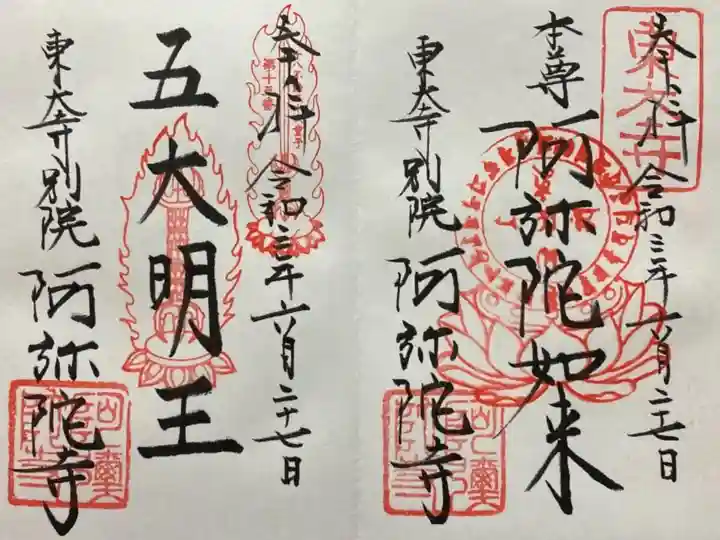 奉拝 令和三年六月二十七日
本尊 阿弥陀如来
東大寺別院 阿弥陀寺
東大寺
奉拝 令和三年六月二十七日
五大明王
東大寺別院 阿弥陀寺
第十三番